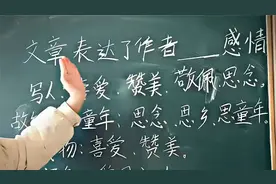 文章表达了作者____感情
写人:喜爱、赞美、敬佩、思念。
童年:思念、思乡、思童年。
物:喜爱、赞美。